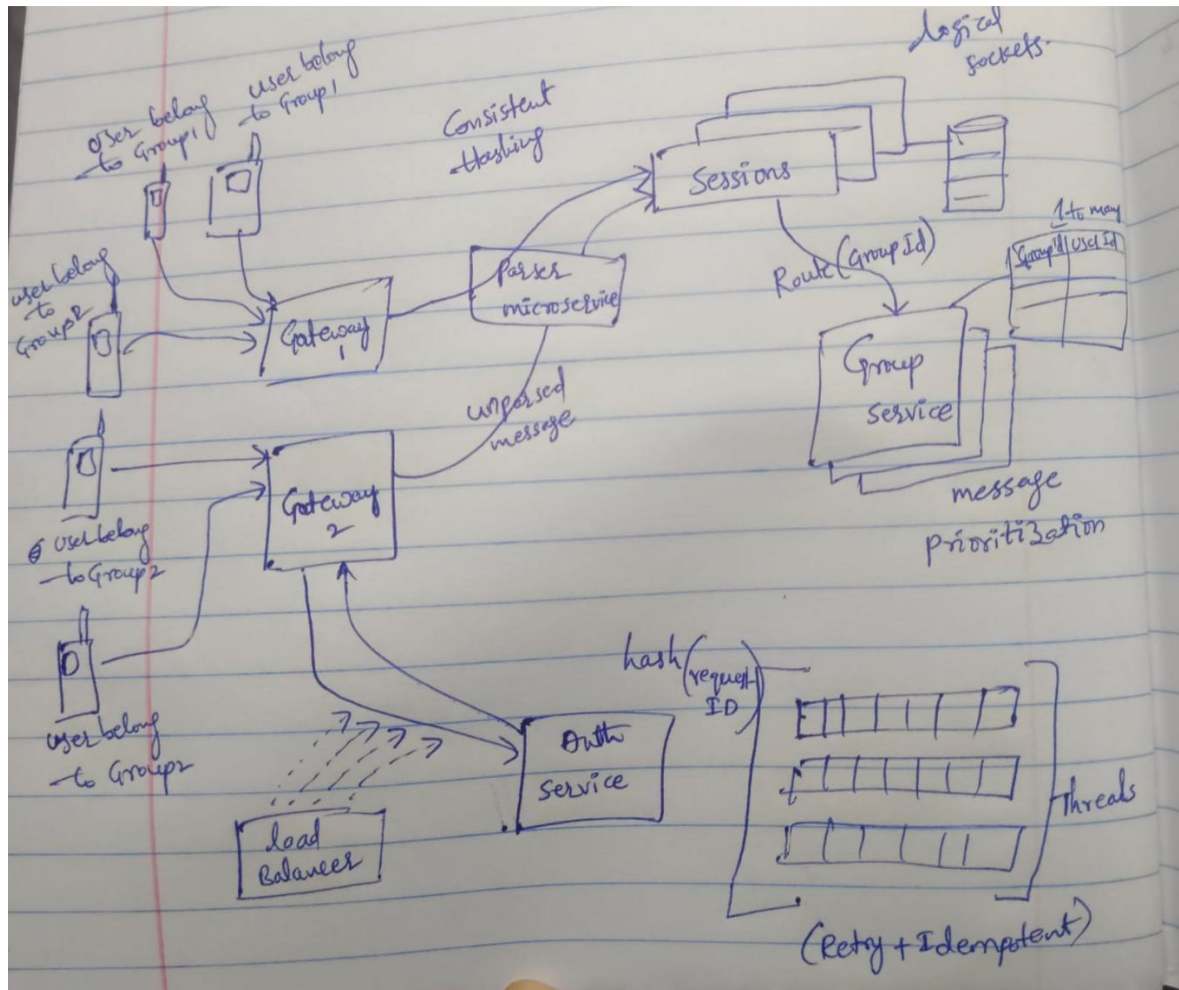 user belong
to Group1
user belong
to Group1
Consistent
Hashing
Logical
sockets.
Sessions
1 to many
Group Id
User Id
Route(Group Id)
user belong
to
Group2
Gateway
1
Parser
microservice
Group
service
unparsed
message
Gateway
2
message
prioritization
user belong
to Group2
user belong
to Group2
hash(request
ID)
Auth
service
Load
Balancer
Threads
(Retry + Idempotent)